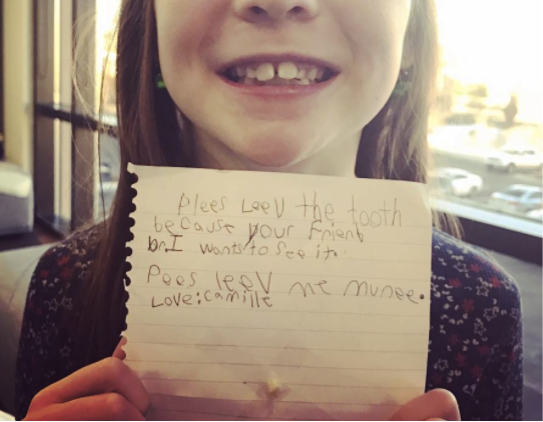 Plees LeeV the tooth
because your Friend
br.I wants to See it.
Pees leeV me munee.
Love: camille